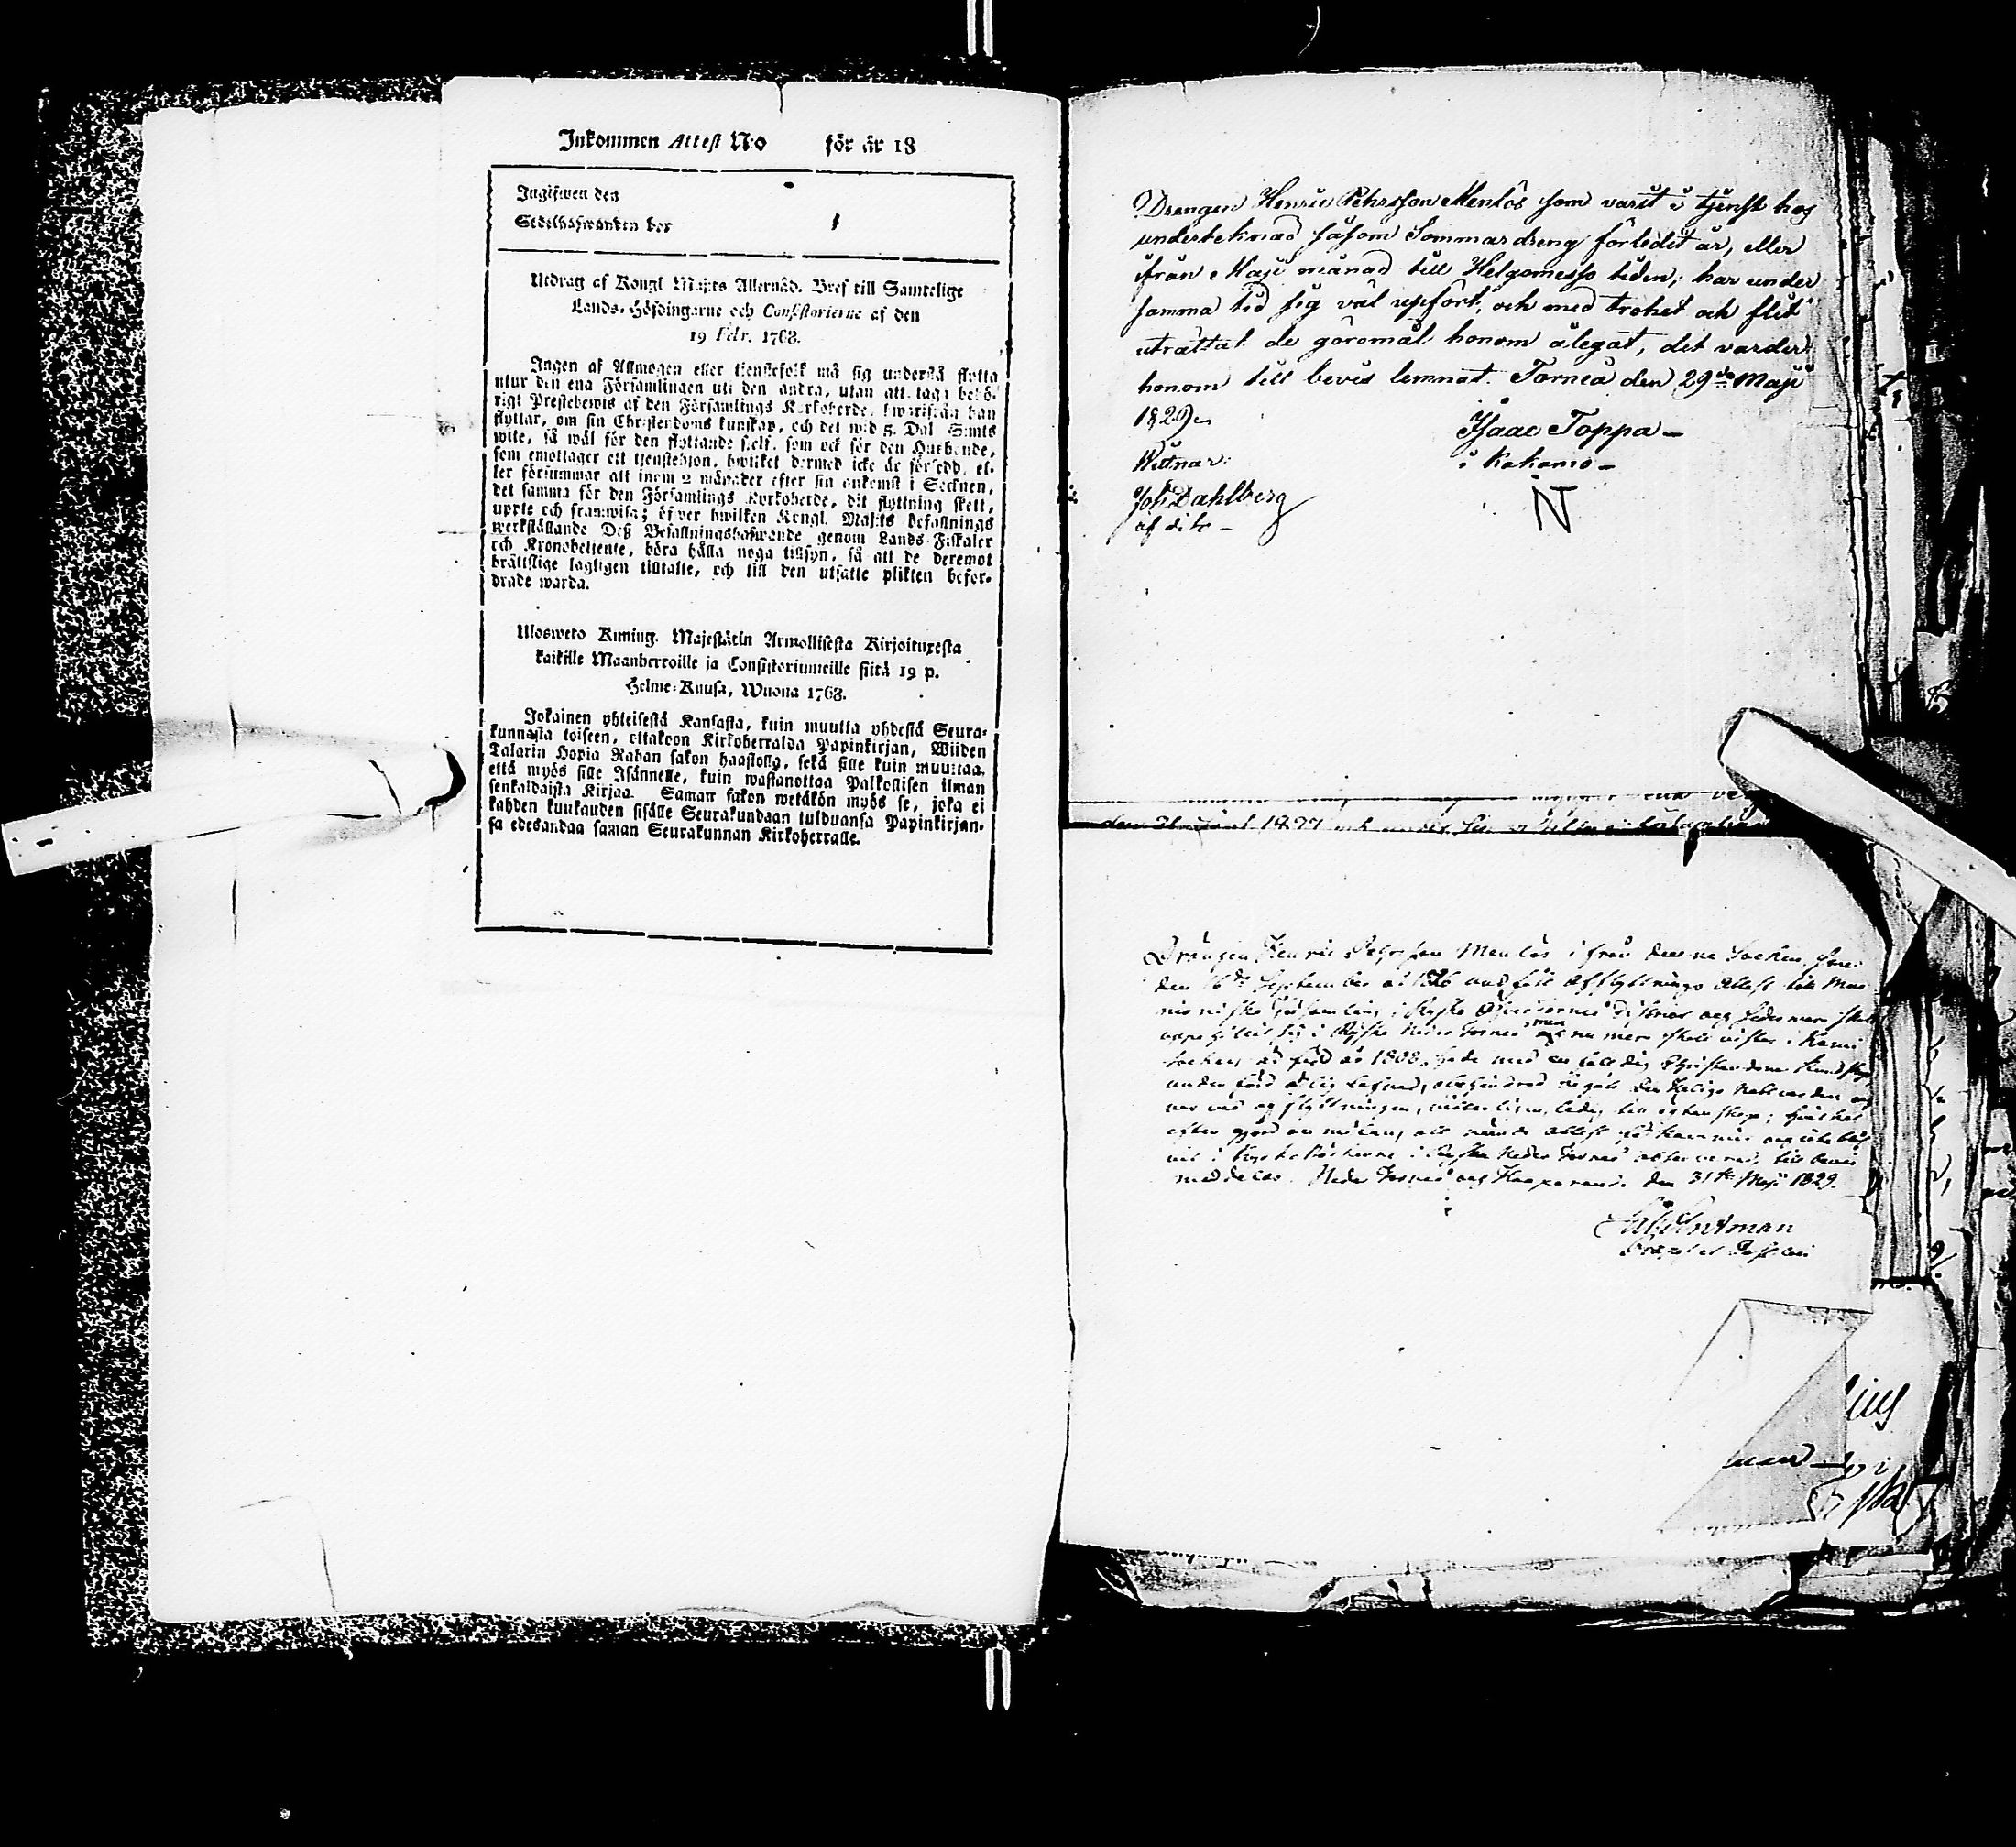 Inkommen Attest N:o för år 18
Ingifwen den
Utdrag af Kongl Maj:ts Allernåd. Bref till Samtelige
Lands-Höfdingarne och Consistorierne af den
19 Febr. 1768.
Ingen af Allmogen eller tjenstefolk må sig understå flytta
utur den ena Församlingen uti den andra, utan att taga behö-
rigt Prestebewis af den Församlings Kyrkoherde, hwarifrån han
flyttar, om sin Christendoms kunskap, och det wid 5. Dal. S:mts
wite, så wäl för den flyttande sjelf, som ock för den Husbonde,
som emottager ett tjenstehjon, hwilket dermed icke är försedd, el-
ler försummar att inom 2 månader efter sin ankomst i Socknen,
det samma för den Församlings Kyrkoherde, dit flyttning skett,
upple och framwisa; öfwer hwilken Kongl. Maj:ts befallnings
werkställande Deß Befallningshafwande genom Lands-Fiskaler
och Kronobetjente, böra hålla noga tillsyn, så att de deremot
brättslige lagligen tilltalte, och till den utsatte plikten befor-
drade warda.
Ulosweto Kuning. Majestätin Armollisesta Kirjoituxesta
kaikille Maanherroille ja Consistoriumeille siitä 19 p.
Helme-Kuusa, Wuona 1768.
Jokainen yhteisestä Kansasta, kuin muutta yhdestä Seura-
kunnasta toiseen, ottakoon Kirkoherralda Papinkirjan, Wiiden
Talarin Hopia Rahan sakon haastolla, sekä sille kuin muuttaa,
että myös sille Isännelle, kuin wastanottaa Palkollisen ilman
senkaldaista Kirjaa. Saman sakon wetäkön myös se, joka ei
kahden kuukauden sisälle Seurakundaan tulduansa Papinkirjan-
sa edesandaa saman Seurakunnan Kirkoherralle.
Drengen Henric Pehrsson Menlös som varit i tjenst hos
underteknad såsom Sommardreng förledit år, eller
ifrån Maji månad till Helgomesso tiden; har under
samma tid sig väl upfört, och med trohet och flit
uträttat de göromål honom ålegat, det varder
honom till bevis lemnat. Torneå den 29de Maji
1829.
Isaac Toppa
i Kakamo
Witnar:
N
Joh Dahlberg
af dito
Drängen Henric Pehrsson Menlös ifrån denne Socken, som
den 16de September år 1826 afflyttnings Attest till Muo
nioniska Församling i Ryska Öfvertorneå District och sedermera skall
uppehållit sig i Ryska Neder Torneå men nu mera skall vistas i Kemi
Socken är född år 1808, hade med Christendoms Kundskap
under förd ärlig lefnad, obehindrad begått den Heliga Nattvarden och
var vid afflyttningen, ledig till ägtenskap; hvilket
efter gjord anmälan, att nämde Attest förkommit
i Ryska Neder Torneå till bevis
meddelas. Neder Torneå och Haaparanda den 31te Maji 1829.